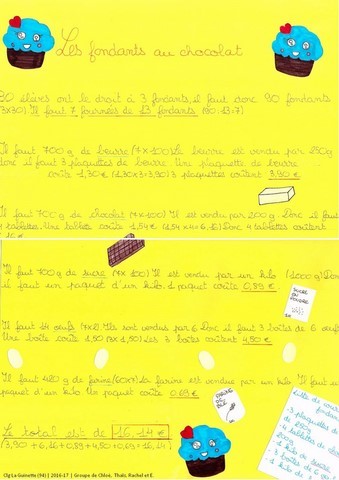 Les fondants au chocolat
30 élèves ont le droit à 3 fondants, il faut donc 90 fondants
(3x30). Il faut 7 fournées de 13 fondants (90:13=7)
Il faut 700g de beurre (7x100) Le beurre est vendu par 250g
donc il faut 3 plaquettes de beurre. Une plaquette de beurre
coûte 1,30€ (1,30x3=3,90) 3 plaquettes coûtent 3,90 €
Il faut 700g de chocolat (7x100) Il est vendu par 200g. Donc il faut
4 tablettes. Une tablette coûte 1,54€ (1,54x4=6,16) Donc 4 tablettes coûtent
Il faut 700g de sucre (7x100) Il est vendu par un kilo (1000g) Donc
il faut un paquet d'un kilo. 1 paquet coûte 0,89€
SUCRE
EN
POUDRE
Il faut 14 oeufs (7x2). Ils sont vendus par 6 Donc il faut 3 boîtes de 6 oeufs
Une boîte coûte 1,50 (3x1,50) Les 3 boîtes coûtent 4,50€
Il faut 420g de farine (60x7) La farine est vendue par un kilo. Il faut un
paquet d'un kilo. Un paquet coûte 0,69€
FARINE
DE
BLÉ
Liste de courses
fondants
-3 plaquettes de
de 250g
-4 tablettes de
200g
-3 boîtes de 6
-1 kilo de
-1 kilo de
Le total est de 16,14€
(3,90+6,16+0,89+4,50+0,69=16,14)
Clg La Guinette (94) | 2016-17 | Groupe de Chloé, Thaïs, Rachel et E.